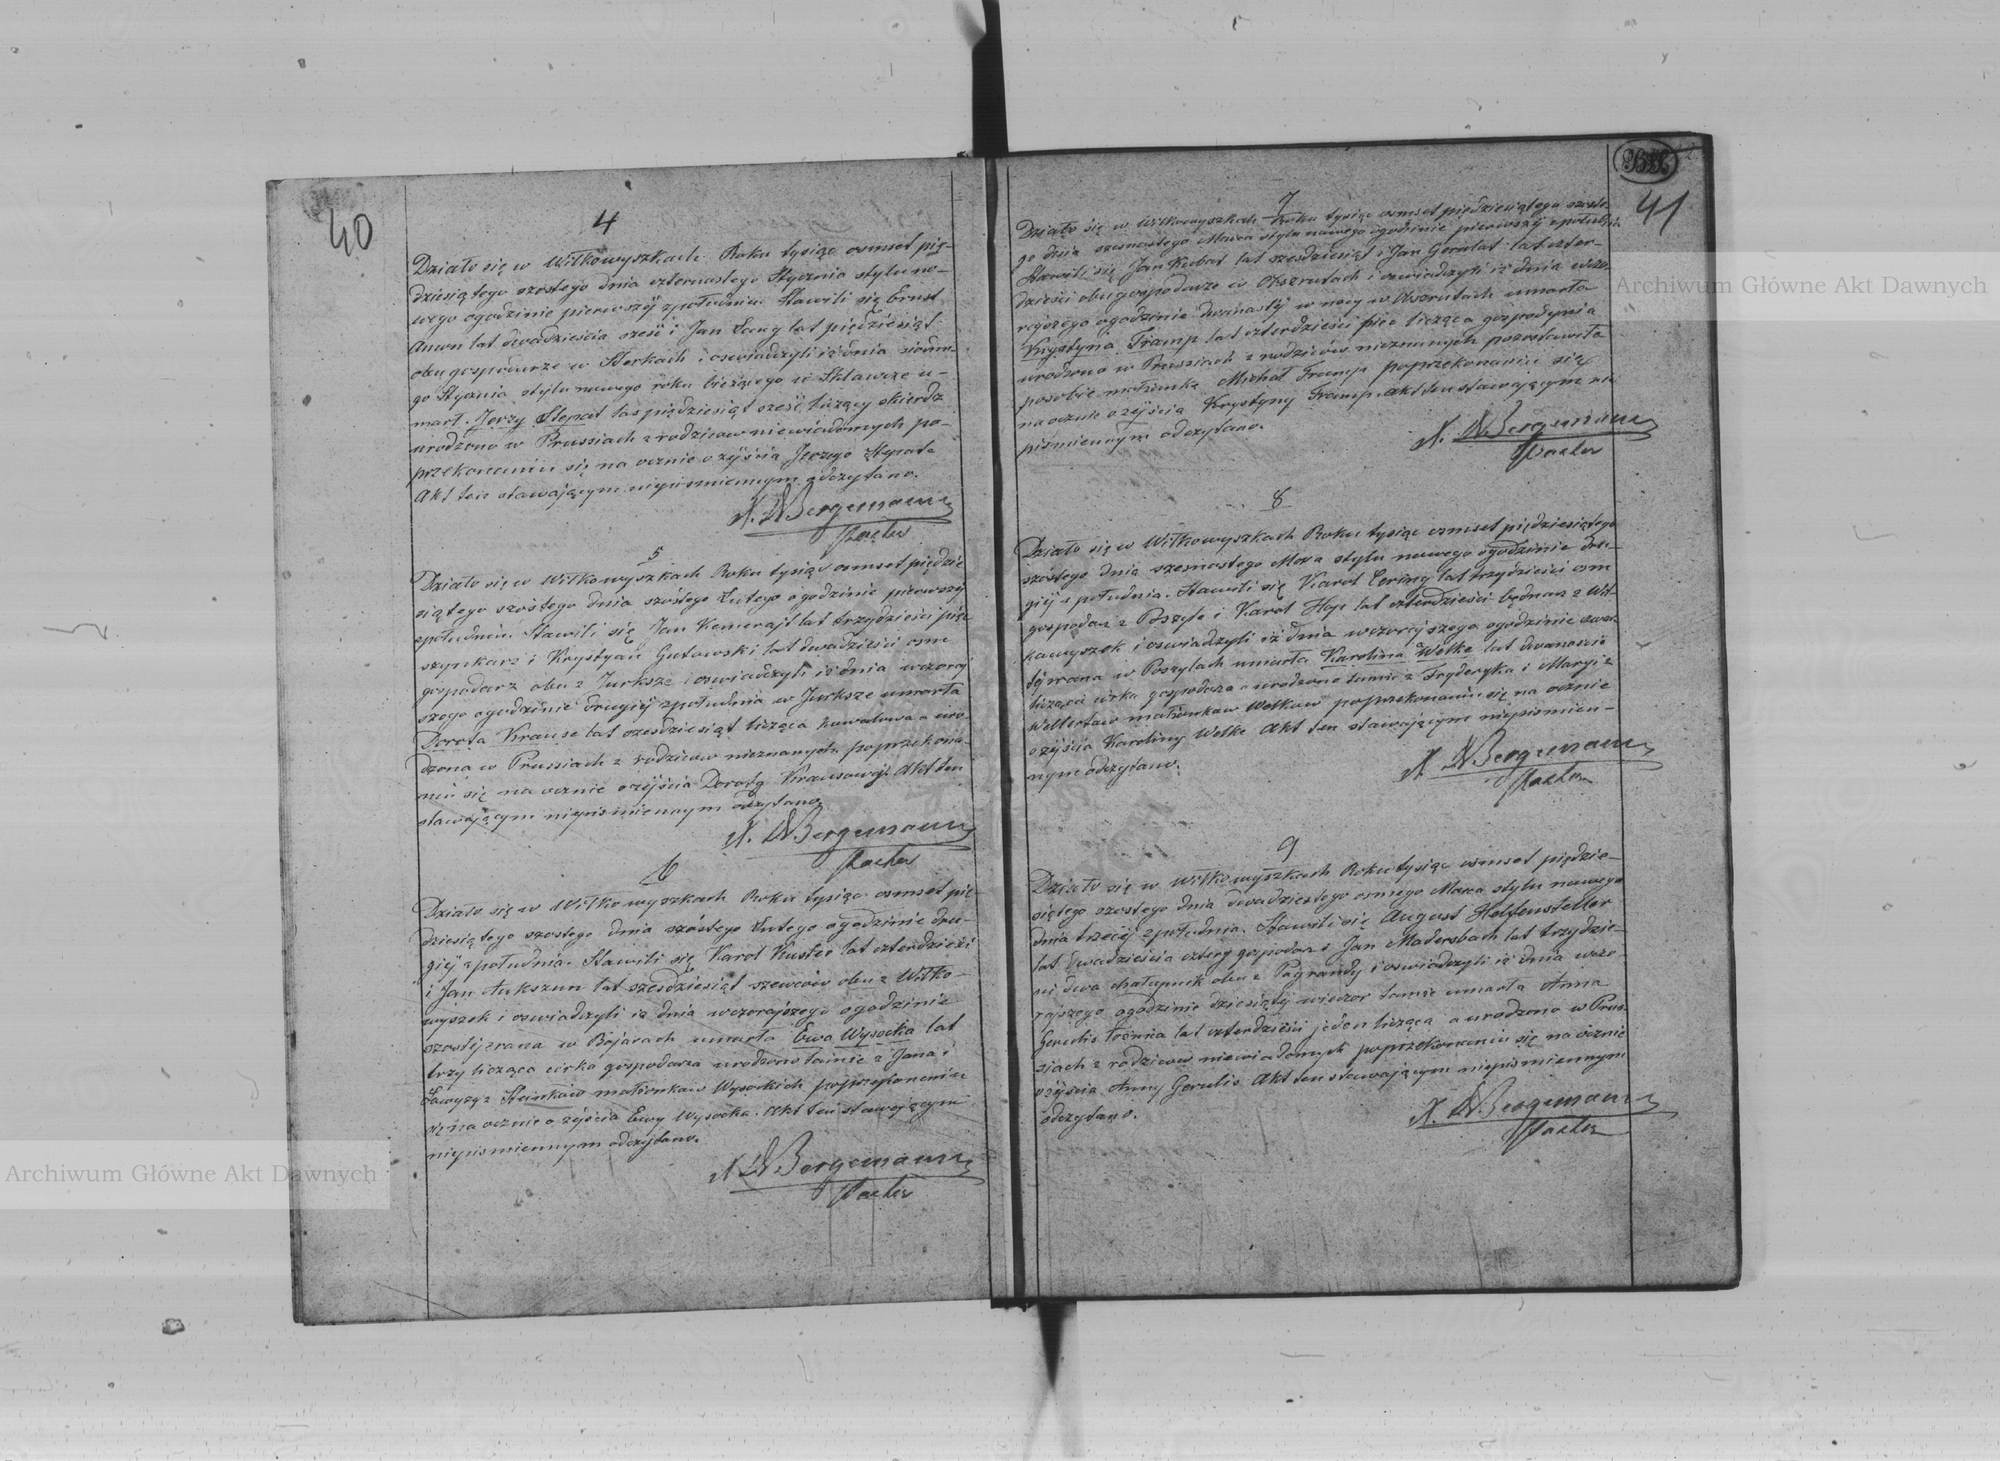 40
4
Działo się w Wiłkowyszkach Roku tysiąc osmset pię-
dziesiątego szóstego dnia czternastego Stycznia stylu no-
wego o godzinie pierwszéj z południa Stawili się Ernst
lat dwadzieścia sześć i Jan Lang lat pięćdziesiąt
obu gospodarze w Sterkach i oswiadczyli iż dnia siódme-
go Stycznia stylu nowego roku bieżącego w u-
marł Jerzy Stepat lat pięćdziesiąt sześć liczący
urodzony w Prussiach z rodziców niewiadomych po-
przekonaniu się na ocznie o zejściu Jerzego Stepata
Akt ten stawającym niepismiennym odczytano.
A. W Bergemann
Pastor
5
Działo się w Wiłkowyszkach Roku tysiąc osmset pięćdzie
siątego szóstego dnia szóstego Lutego o godzinie pierwszéj
z południa Stawili się Jan Kemerajt lat trzydzieści pięć
szynkarz i Krystyan Gutowski lat dwadzieści osm
gospodarz obu z Jurksze i oswiadczyli iż dnia wczoraj
szego o godzinie drugiéj z południa w Jurksze umarła
Dorota Krause lat sześdziesiąt licząca kowalowa a uro-
dzona w Prussiach z rodziców nieznanych poprzekona-
niu się na ocznie o zejściu Doroty Krausowéj Akt ten
stawającym niepismiennym odczytano.
A. W Bergemann
Pastor
6
Działo się w Wiłkowyszkach Roku tysiąc osmset pię-
dziesiątego szostego dnia szóstego Lutego o godzinie dru-
giéj z południa. Stawili się Karol Kuster lat czterdzieści
i Jan Aukszun lat sześdziesiąt szewców obu z Wiłko-
wyszek i oswiadczyli iż dnia wczorajszego o godzinie
szostéj zrana w Bojarach umarła Ewa Wysocka lat
trzy licząca córka gospodarza urodzona tamże z Jana i
małżonków Wysockich poprzekonaniu
się na ocznie o zejściu Ewy Wysocka. Akt ten stawającym
niepismiennym odczytano.
A. W Bergemann
Pastor
41
7
Działo się w Wiłkowyszkach Roku tysiąc osmset pięćdziesiątego szoste-
go dnia szesnastego Marca stylu nowego o godzinie pierwszéj z południa
Stawili się Jan Kubat lat sześdziesiąt i Jan Gerulat lat czter-
dzieści obu gospodarze w Obszrutach i oswiadczyli iż dnia wczo-
rajszego o godzinie dwunastéj w nocy w Obszrutach umarła
Krystyna Tramp lat czterdzieści pięć licząca gospodynia
urodzona w Prussiach z rodziców nieznanych pozostawiła
posobie małżonka Michał Tramp poprzekonaniu się
na ocznie o zejściu Krystyny Tramp. Akt ten stawającym nie
pismiennym odczytano.
A. W Bergemann
Pastor
8
Działo się w Wiłkowyszkach Roku tysiąc osmset pięćdziesiątego
szóstego dnia szesnastego Marca stylu nowego o godzinie dru-
giéj z południa. Stawili się Karol Cering lat trzydzieści osm
gospodarz z Poszyle i Karol Hop lat czterdzieści bednarz z Wił-
kowyszek i oswiadczyli iż dnia wczorajszego o godzinie
téj zrana w Poszylach umarła Karolina Welke lat dwanaście
licząca córka gospodarza a urodzona tamże z Fryderyka i Maryi z
małżonków Welków poprzekonaniu się na ocznie
o zejściu Karoliny Welke Akt ten stawającym niepismien-
nym odczytano.
A. W Bergemann
Pastor
9
Działo się w Wiłkowyszkach Roku tysiąc osmset pięćdzie-
siętego szostego dnia dwudziestego osmego Marca stylu nowego
dnia trzeciéj z południa. Stawili się August Helfensteller
lat dwadzieścia cztery gospodarz i Jan Madersbach lat trzydzie-
ści dwa chałupnik obu z Pograndy i oswiadczyli iż dnia wczo-
rajszego o godzinie dziesiątéj wieczor tamże umarła Anna
Gerulis lat czterdzieści jeden licząca a urodzona w Prus-
siach z rodziców niewiadomych poprzekonaniu się na ocznie
o zejściu Anny Gerulis Akt ten stawającym niepismiennym
odczytano.
A. W Bergemann
Pastor
Archiwum Główne Akt Dawnych
Archiwum Główne Akt Dawnych